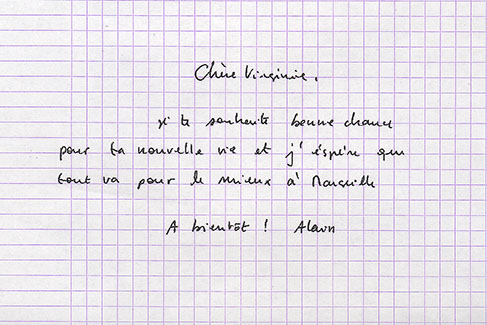 Chère Virginie,
je te souhaite bonne chance
pour ta nouvelle vie et j'éspère que
tout va pour le mieux à Marseille
A bientôt ! Alain